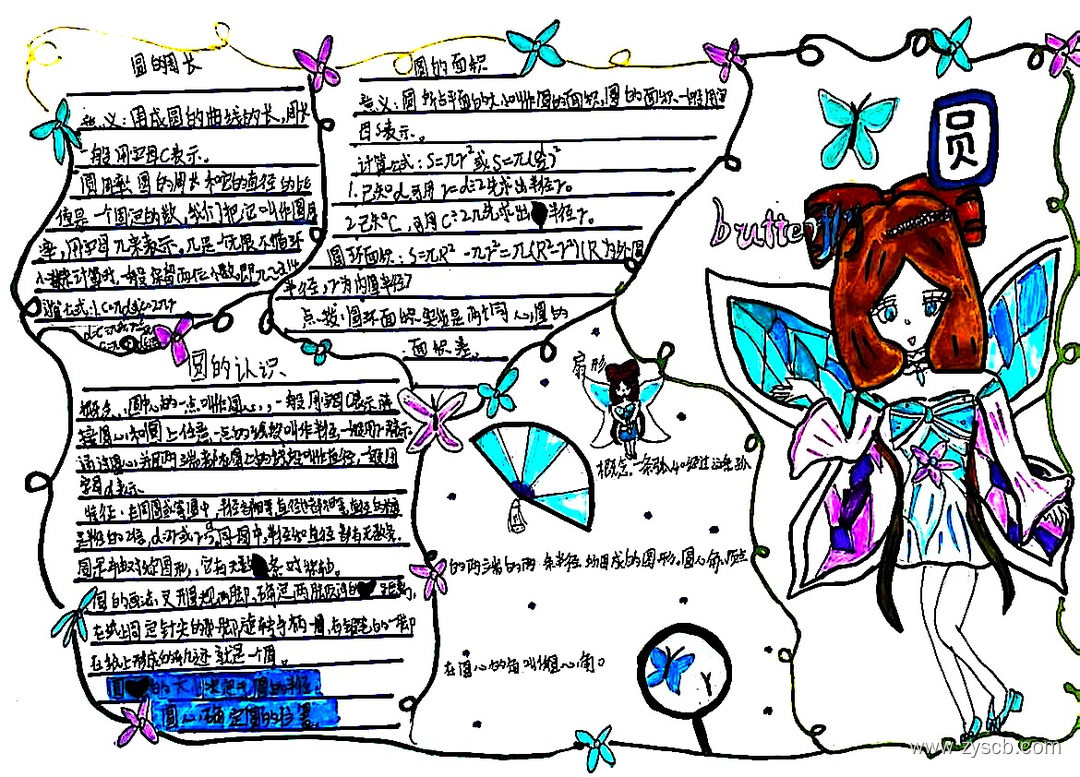 圆的周长
意义:围成圆的曲线的长,周长
一般用字母C表示。
圆周率 圆的周长和它的直径的比
值是一个固定的数,我们把它叫作圆周
率,用字母π来表示,π是一个无限不循环
小数,计算时,一般保留两位小数,即π≈3.14
圆的面积
意义:圆所占平面的大小叫作圆的面积,圆的面积一般用字
母S表示。
计算公式:S=πr²或S=π()²
1.已知d,可用r=d÷2先求出半径r。
2.已知C,可用C÷2π先求出半径r。
圆环面积:S=πR²-πr²=π(R²-r²)(R为外圆
半径,r为内圆半径)
点拨:圆环面积实质是两个同心圆的
面积差。
圆的认识
概念:圆中心的一点叫作圆心,一般用字母表示,连
接圆心和圆上任意一点的线段叫作半径,一般用r表示
通过圆心并且两端都在圆上的线段叫作直径,一般用
字母d表示
特征:在同圆或等圆中,半径都相等,直径也都相等,直径
是半径的2倍,d=2r或r=,同圆中,半径和直径都有无数条。
圆是轴对称图形,它有无数条对称轴。
圆的画法:叉开圆规两脚,确定两脚间的距离,
在纸上固定针尖的一脚,旋转手柄一周,有铅笔的一脚
在纸上形成的轨迹就是一个圆。
圆的大小决定于圆的半径
圆心确定圆的位置
扇形
概念:一条弧和经过这条弧
的两端的两条半径所围成的图形。圆心角,顶点
在圆心的角叫做圆心角。
圆
butterfly
www.zyscb.com